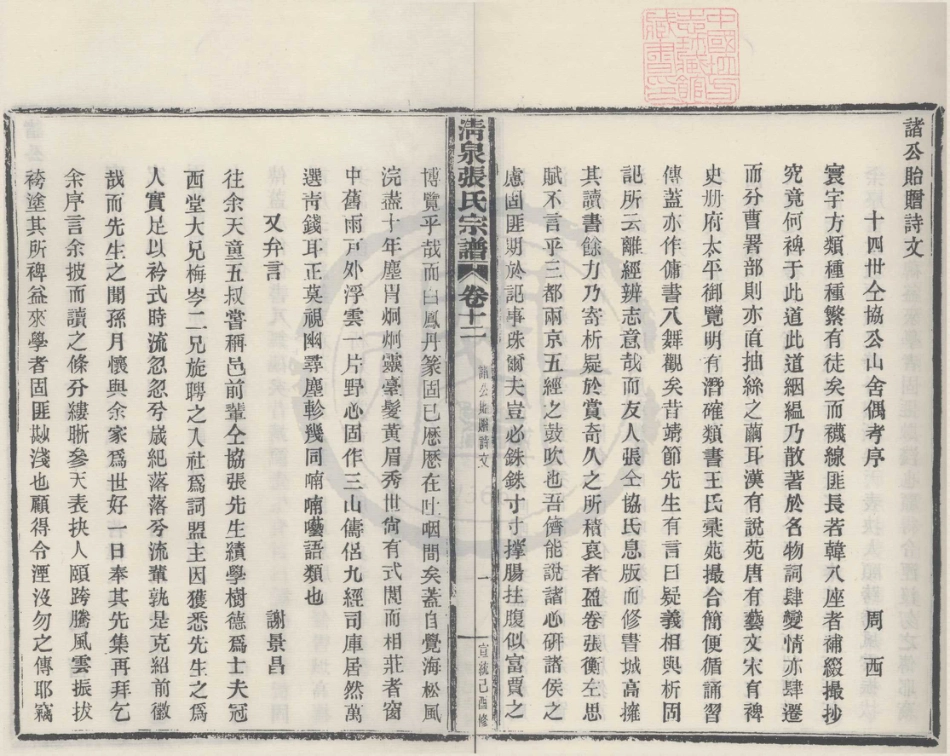 諸公貽贈詩文
十四世仝協公山舍偶考序 周西
寰宇方類種種繁有徒矣而穢線匪長若韓八座者補綴撮抄
究竟何裨于此道此道絪縕乃散著於名物詞肆變情亦肆遷
而分曹署部則亦直抽絲之繭耳漢有說苑唐有藝文宋有稗
史册府太平御覽明有潛確類書王氏彚苑撮合簡便循誦習
傳蓋亦作傭書八舞觀矣昔靖節先生有言曰疑義相與析固
記所云離經辨志意哉而友人張仝協氏息版而修書城高擁
其讀書餘力乃寄析疑於賞奇久之所積裒者盈卷張衡左思
賦不言乎三都兩京五經之鼓吹也吾儕能說諸心研諸侯之
慮固匪期於記事珠爾夫豈必銖銖寸寸撑腸拄腹似富賈之
清泉張氏宗譜 卷十二 諸公貽贈詩文 一 宣統己酉修
博覽乎哉而白鳳丹篆固已歷歷在吐咽間矣蓋自覺海松風
浣盡十年塵胃炯炯靈臺髮黃眉秀世尙有式閭而相莊者窗
中舊雨戸外浮雲一片野心固作三山儔侶九經司庫居然萬
選青錢耳正莫視幽尋塵軫幾同喃喃囈語類也
又弁言 謝景昌
往余天童五叔嘗稱邑前輩仝協張先生績學樹德爲士夫冠
西堂大兄梅岑二兄旋聘之入社爲詞盟主因獲悉先生之爲
人實足以衿式時流忽忽兮歲紀落落兮流輩孰是克紹前徽
哉而先生之聞孫月懷與余家爲世好一日奉其先集再拜乞
余序言余披而讀之條分縷晰參天表抉人頤跨騰風雲振拔
袴塗其所裨益來學者固匪尠淺也顧得令湮沒勿之傳耶竊